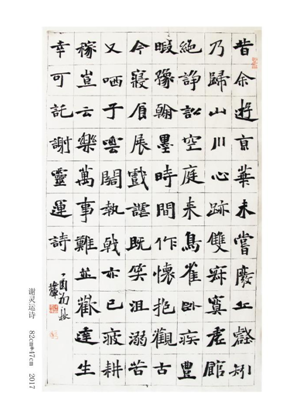 昔余遊亰華未嘗廢丘壑矧
乃歸山川心跡雙寂寞虛館
絕諍訟空庭來鳥雀臥疾豐
暇豫翰墨時間作懷抱觀古
今寢食展戲謔既笑沮溺苦
又哂子雲閣執戟亦已疲耕
稼豈云樂萬事難並歡達生
幸可託謝靈運詩
谢灵运诗 82cm*47cm 2017